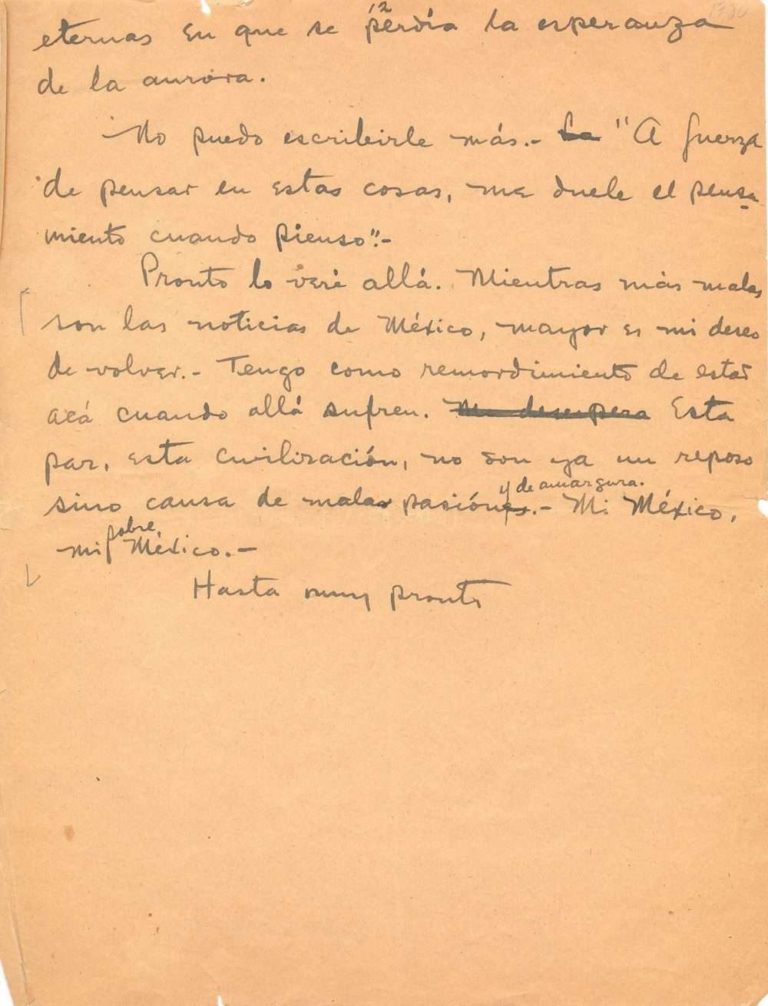 12
eternas en que se perdía la esperanza
de la aurora.
No puedo escribirle más.- La "A fuerza
de pensar en estas cosas, me duele el pensa-
miento cuando pienso".-
Pronto lo veré allá. Mientras más malas
son las noticias de México, mayor es mi deseo
de volver.- Tengo como remordimiento de estar
acá cuando allá sufren. Me desespera Esta
paz, esta civilización, no son ya un reposo
sino causa de malas pasiónes y de amargura.- Mi México,
mi pobre México.-
Hasta muy pronto